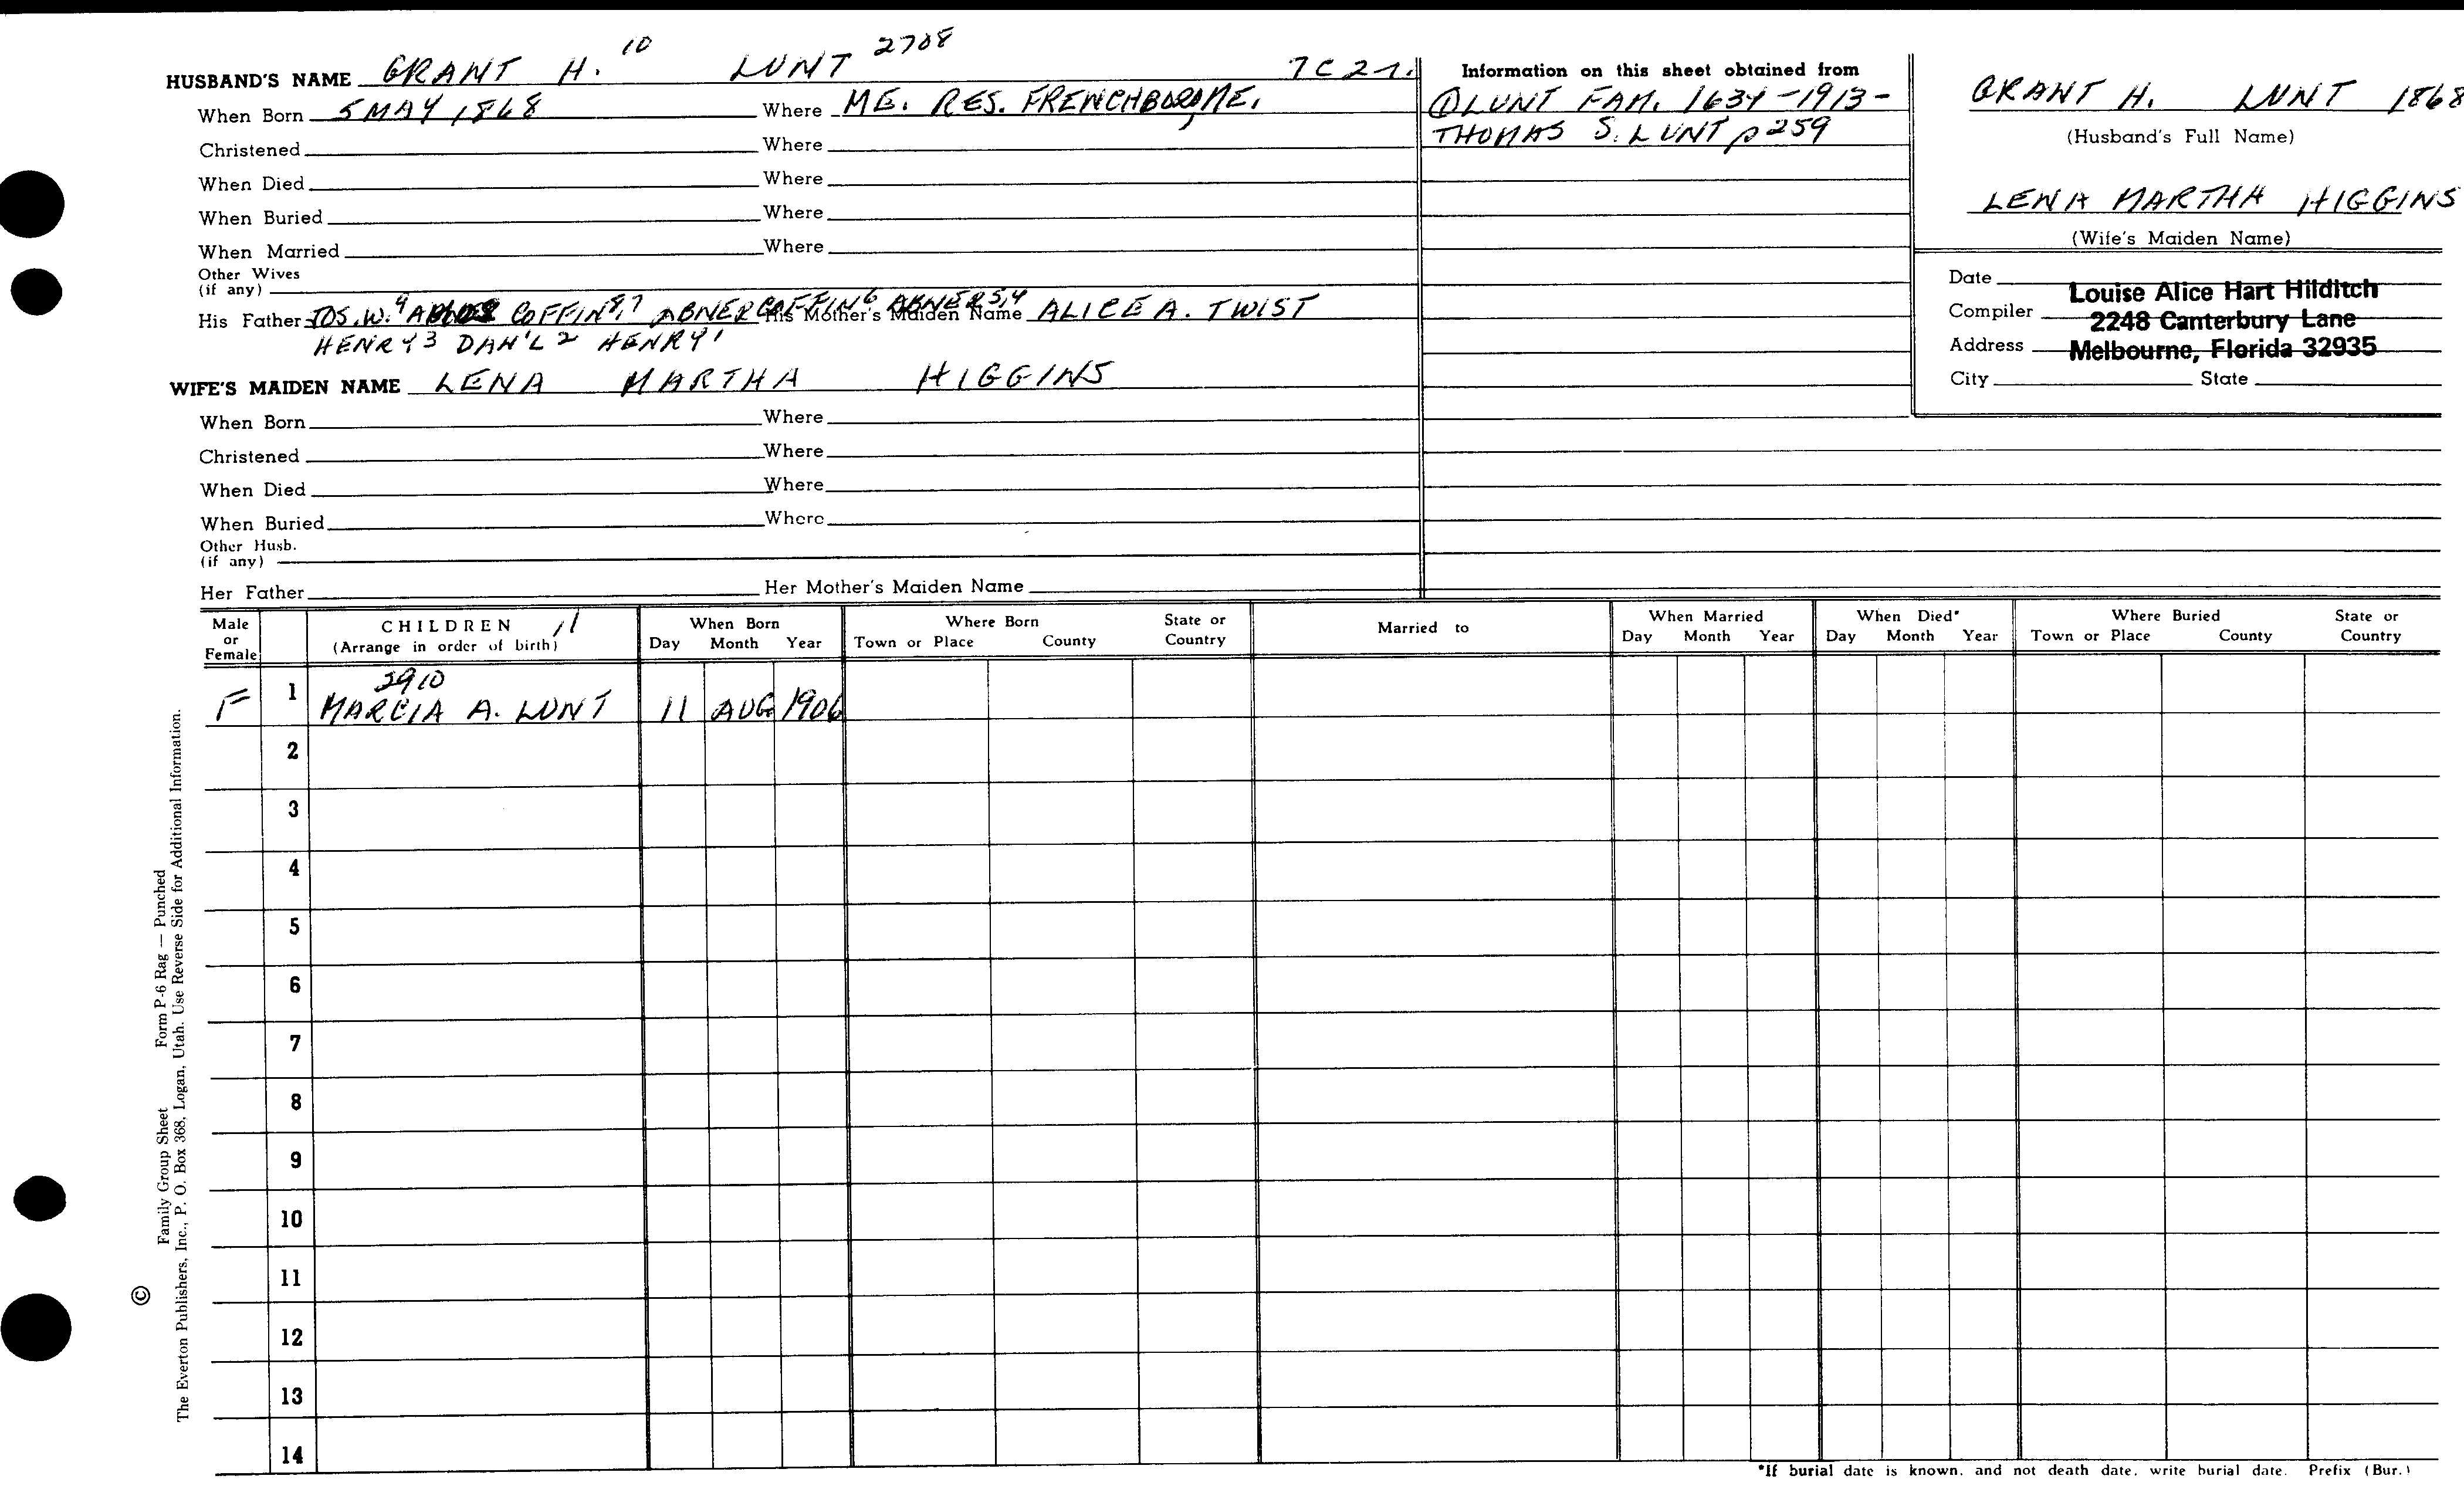 HUSBAND'S NAME GRANT H. 10 LUNT 2708 7C21.
When Born 5 MAY 1868 Where ME. RES. FRENCHBORO, ME.
Christened Where
When Died Where
When Buried Where
When Married Where
Other Wives
(if any)
His Father JOS. W. 9 COFFIN 8,7 ABNER COFFIN 6 ABNER 5,4 His Mother's Maiden Name ALICE A. TWIST
HENRY 3 DAN'L 2 HENRY 1
WIFE'S MAIDEN NAME LENA MARTHA HIGGINS
When Born Where
Christened Where
When Died Where
When Buried Where
Other Husb.
(if any)
Her Father Her Mother's Maiden Name
Information on this sheet obtained from
① LUNT FAM. 1634-1913-
THOMAS S. LUNT p259
GRANT H. LUNT 1868
(Husband's Full Name)
LENA MARTHA HIGGINS
(Wife's Maiden Name)
Date
Compiler
Address
City State
Louise Alice Hart Hilditch
2248 Canterbury Lane
Melbourne, Florida 32935
Male or Female
CHILDREN 11
(Arrange in order of birth)
When Born
Day Month Year
Where Born
Town or Place County State or Country
Married to
When Married
Day Month Year
When Died*
Day Month Year
Where Buried
Town or Place County State or Country
2910
F 1 MARCIA A. LUNT 11 AUG 1906
2
3
4
5
6
7
8
9
10
11
12
13
14
*If burial date is known, and not death date, write burial date. Prefix (Bur.)
Family Group Sheet Form P-6 Rag — Punched
© The Everton Publishers, Inc., P. O. Box 368, Logan, Utah. Use Reverse Side for Additional Information.